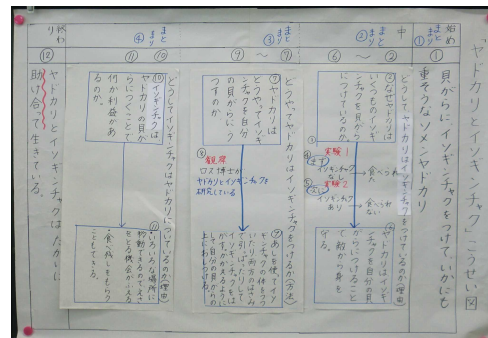 「ヤドカリとイソギンチャク」こうせい図
始め
まとまり①
①
貝がらにイソギンチャクをつけていかにも
重そうなソメンヤドカリ
中
まとまり②
②～⑥
どうしてヤドカリはイソギンチャクをつけているのか(理由)
②なぜヤドカリは
いくつもの
イソギンチャクを貝がら
につけているのか。
実験1
イソギンチャク
なし
食べられる
実験2
イソギンチャク
あり
食べられ
ない
ヤドカリはイソギ
ンチャクを自分の貝
がらにつけること
で敵から身を
守る。
まとまり③
⑦～⑨
どうやってヤドカリはイソギンチャクをつけるか(方法)
⑦ヤドカリは
どうやってイソギ
ンチャクを自分
の貝がらにう
つすのか。
⑧
観察
ロス博士が
ヤドカリとイソギンチャクを
研究している
⑨あしを使ってイソ
ギンチャクの体をつつ
いたり両方のはさみ
で引っぱったりして
イソギンチャクを
はがす
して自分の貝がらの
上におしつける。
まとまり④
⑩⑪
どうしてイソギンチャクはヤドカリについているのか(理由)
⑩イソギンチャクは
ヤドカリの貝が
らにつくことで
何か利益があ
るのか。
⑪
・いろいろな場所に
移動できるのでえさ
をとる機会がふえる
・食べ残しをもらう
こともできる。
終わり
⑫
ヤドカリとイソギンチャクはたがいに
助け合って生きている。